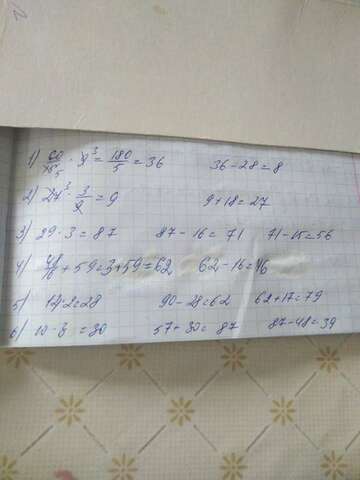 1) 60/15 5 · 9 3 = 180/5 = 36 36 - 28 = 8
2) 27 3 · 3/9 = 9 9 + 18 = 27
3) 29 · 3 = 87 87 - 16 = 71 71 - 15 = 56
4) 48/16 + 59 = 3 + 59 = 62 62 - 16 = 46
5) 14·2=28 90 - 28 = 62 62 + 17 = 79
6) 10 · 3 = 30 57 + 30 = 87 87 - 48 = 39